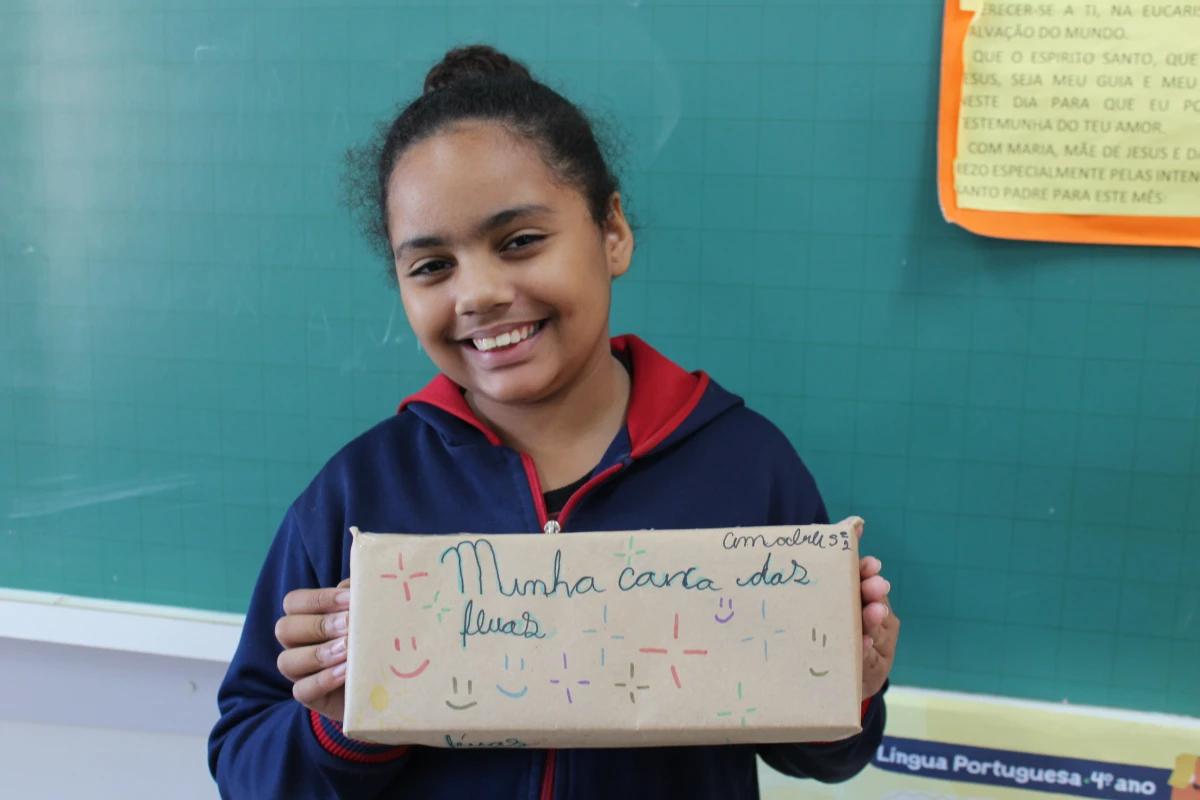 ERECER-SE A TI, NA EUCARIS
ALVAÇÃO DO MUNDO.
QUE O ESPIRITO SANTO, QUE
ESUS, SEJA MEU GUIA E MEU
NESTE DIA PARA QUE EU PO
ESTEMUNHA DO TEU AMOR.
COM MARIA, MÃE DE JESUS E DA
REZO ESPECIALMENTE PELAS INTEN
SANTO PADRE PARA ESTE MÊS:
Minha caixa das
Língua Portuguesa 4º ano